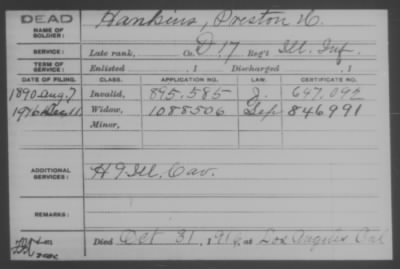 DEAD
NAME OF SOLDIER: Hankins, Preston H.
SERVICE: Late rank, Co. D. 17 Reg't Ill. Inf.
TERM OF SERVICE: Enlisted , 1 Discharged , 1
DATE OF FILING. CLASS. APPLICATION NO. LAW. CERTIFICATE NO.
1890 Aug. 7 Invalid, 895.585 J. 697.092
1916 Dec 11 Widow, 1088506 Sep 846991
Minor,
ADDITIONAL SERVICES: H 9 Ill. Cav.
REMARKS:
Died Oct 31, 1916, at Los Angeles Cal